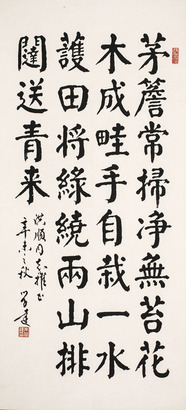 茅簷常掃净無苔花
木成畦手自栽一水
護田將綠繞兩山排
闥送青来
洪順同志雅正
辛未之秋